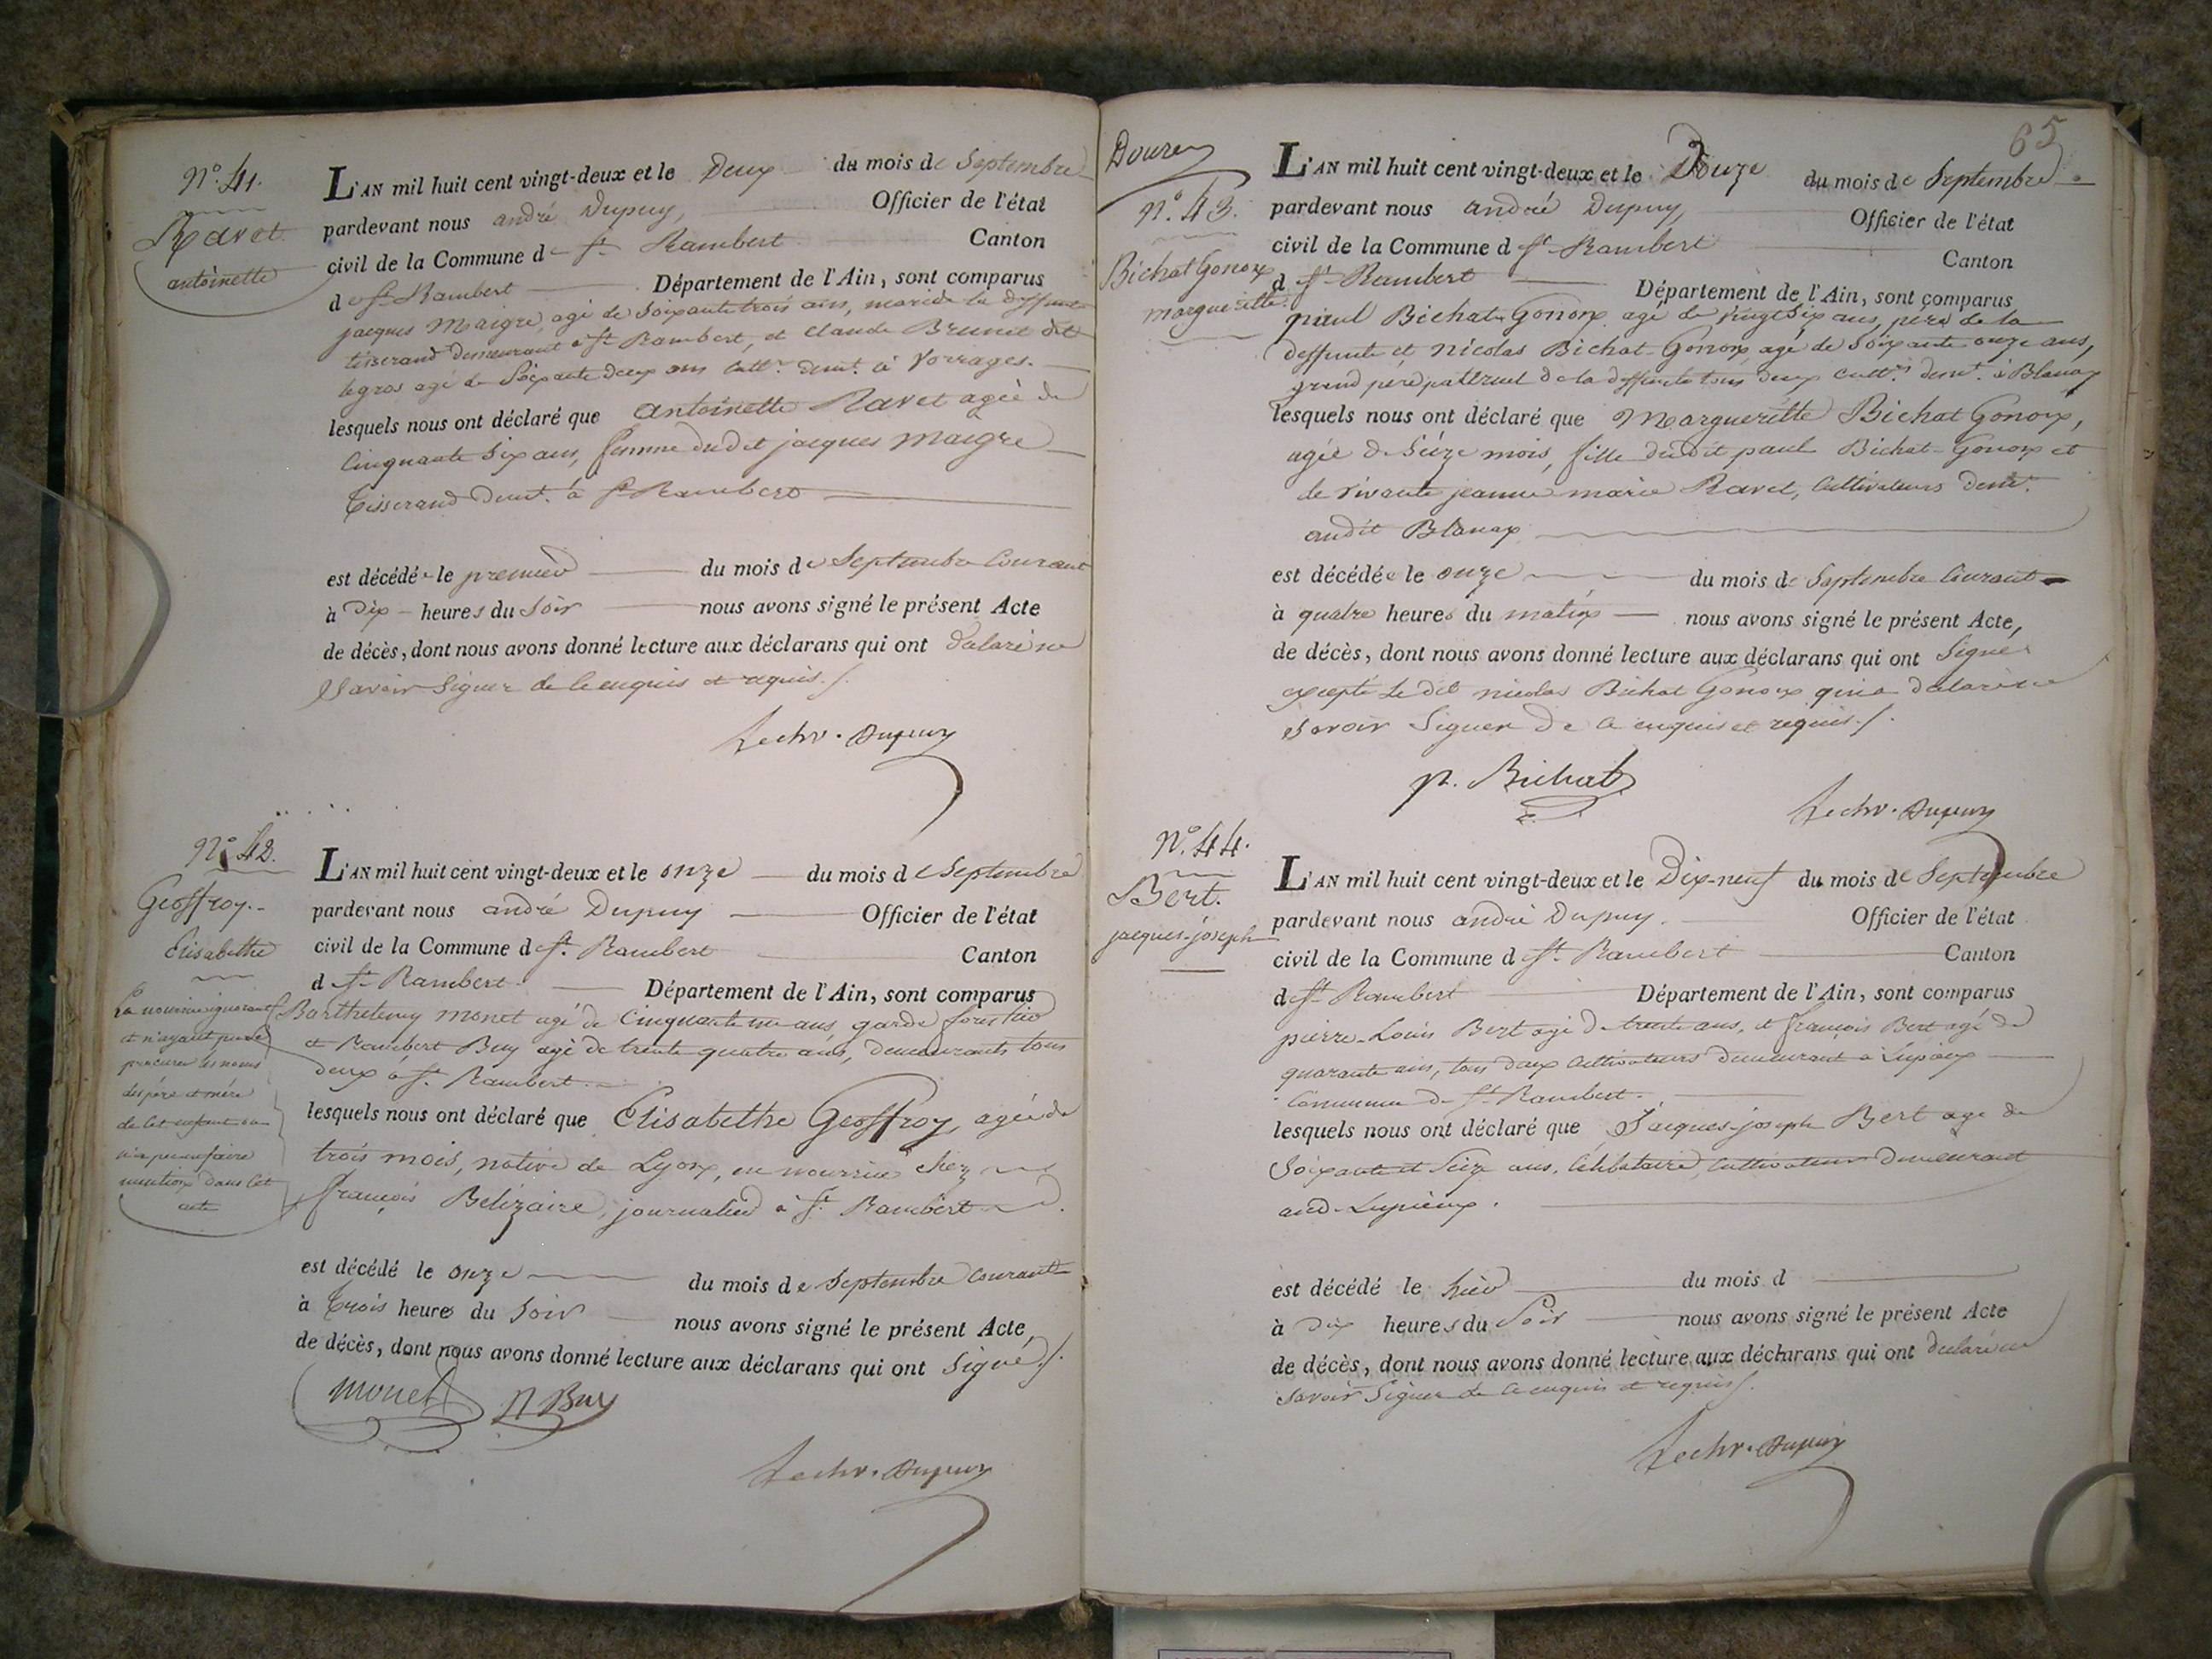 N.° 41.
Ravet
antoinette
L'AN mil huit cent vingt-deux et le Deux du mois de Septembre
pardevant nous andré Dupuy, Officier de l'état
civil de la Commune d St. Rambert Canton
de St. Rambert Département de l'Ain, sont comparus
jacques Maigre, agé de Soixante trois ans, mari de la deffunte
tisserand demeurant a St. Rambert, et Claude Brunet dit
legros agé de Soixante deux ans cultr. demt. à Vorrages.
lesquels nous ont déclaré que antoinette Ravet agée de
Cinquante Six ans, femme dudit jacques Maigre
Tisserand demt. à St. Rambert
est décédée le premier du mois de Septembre Courant
à Dix heures du Soir nous avons signé le présent Acte
de décès, dont nous avons donné lecture aux déclarans qui ont déclaré ne
Savoir Signer de ce enquis et requis.
Dupuy
N.° 42.
Geoffroy.
Elisabethe
La nourrice ignorant
et n'ayant pu se
procurer les noms
des père et mère
de cet enfant on
n'a pu en faire
mention dans cet
acte
L'AN mil huit cent vingt-deux et le onze du mois de Septembre
pardevant nous andré Dupuy Officier de l'état
civil de la Commune d St. Rambert Canton
d St. Rambert Département de l'Ain, sont comparus
Barthelemy monet agé de Cinquante un ans, garde forestier
et Rambert Buy agé de trente quatre ans, demeurants tous
deux à St. Rambert.
lesquels nous ont déclaré que Elisabethe Geoffroy, agée de
trois mois, native de Lyon, en nourrice chez
françois Belizaire, journalier à St. Rambert
est décédé le onze du mois de Septembre Courant
à Trois heures du Soir nous avons signé le présent Acte,
de décès, dont nous avons donné lecture aux déclarans qui ont Signé.
monet R Buy
Dupuy
65
N.° 43.
Bichat Gonox
margueritte.
L'AN mil huit cent vingt-deux et le Douze du mois de Septembre
pardevant nous andré Dupuy, Officier de l'état
civil de la Commune d St. Rambert Canton
d St. Rambert Département de l'Ain, sont comparus
paul Bichat-Gonox agé de vingt Six ans, père de la
deffunte et nicolas Bichat-Gonox agé de Soixante onze ans,
grand père paternel de la deffunte tous deux cultrs. demt. à Blanax
lesquels nous ont déclaré que Margueritte Bichat Gonox,
agée de Séize mois, fille dudit paul Bichat-Gonox et
de vivante jeanne marie Ravet, Cultivateurs demt.
audit Blanax
est décédée le onze du mois de Septembre Courant
à quatre heures du matin nous avons signé le présent Acte,
de décès, dont nous avons donné lecture aux déclarans qui ont Signé
excepté le dit nicolas Bichat Gonox qui a déclaré ne
Savoir Signer de ce enquis et requis.
p. Bichat
Dupuy
N.° 44.
Bert.
jacques-joseph
L'AN mil huit cent vingt-deux et le Dix-neuf du mois de Septembre
pardevant nous andré Dupuy. Officier de l'état
civil de la Commune d St. Rambert Canton
de St. Rambert Département de l'Ain, sont comparus
pierre-Louis Bert agé de trente ans, et françois Bert agé de
quarante ans, tous deux Cultivateurs demeurant à Lupieux
Commune de St. Rambert.
lesquels nous ont déclaré que Jacques-joseph Bert age de
Soixante et Seize ans, Célibataire, Cultivateur demeurant
aud. Lupieux.
est décédé le hier du mois d
à dix heures du Soir nous avons signé le présent Acte
de décès, dont nous avons donné lecture aux déclarans qui ont declaré ne
Savoir Signer de ce enquis et requis.
Dupuy